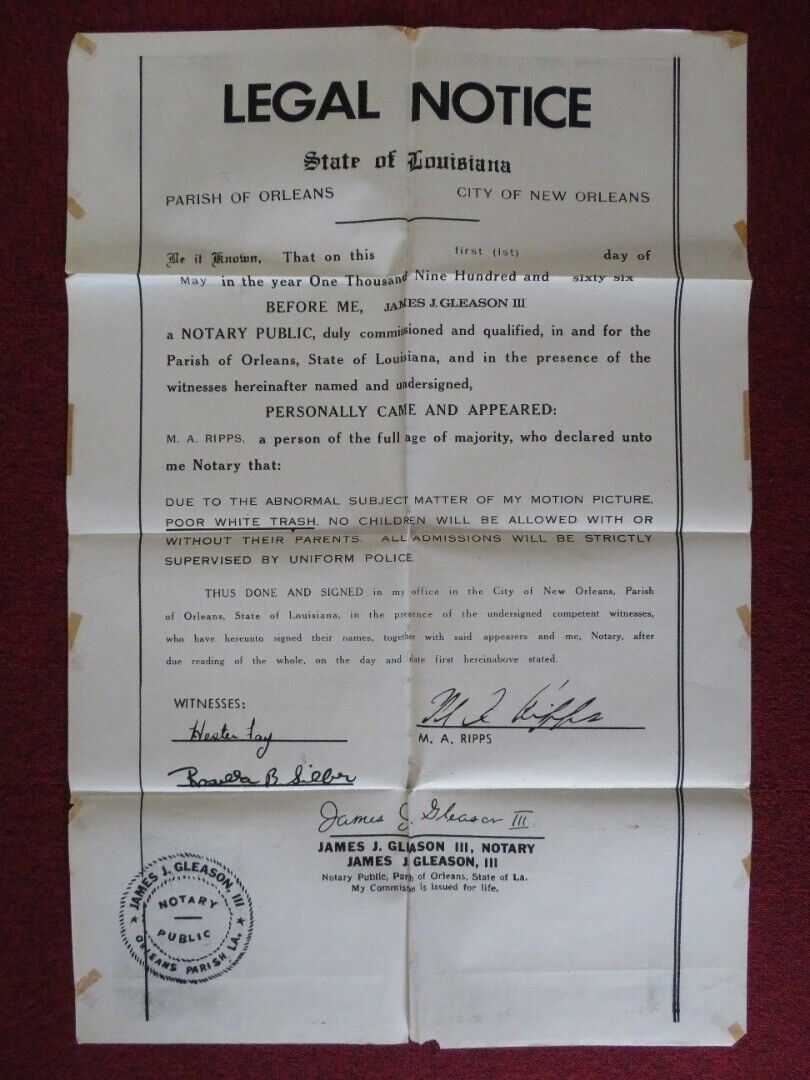 LEGAL NOTICE
State of Louisiana
PARISH OF ORLEANS CITY OF NEW ORLEANS
Be it Known, That on this first (1st) day of
May in the year One Thousand Nine Hundred and sixty six
BEFORE ME, JAMES J. GLEASON III
a NOTARY PUBLIC, duly commissioned and qualified, in and for the
Parish of Orleans, State of Louisiana, and in the presence of the
witnesses hereinafter named and undersigned,
PERSONALLY CAME AND APPEARED:
M. A. RIPPS. a person of the full age of majority, who declared unto
me Notary that:
DUE TO THE ABNORMAL SUBJECT MATTER OF MY MOTION PICTURE,
POOR WHITE TRASH, NO CHILDREN WILL BE ALLOWED WITH OR
WITHOUT THEIR PARENTS. ALL ADMISSIONS WILL BE STRICTLY
SUPERVISED BY UNIFORM POLICE.
THUS DONE AND SIGNED in my office in the City of New Orleans, Parish
of Orleans, State of Louisiana, in the presence of the undersigned competent witnesses,
who have hereunto signed their names, together with said appearers and me, Notary, after
due reading of the whole, on the day and date first hereinabove stated.
WITNESSES:
Hester Fay
M A Ripps
M. A. RIPPS
Rosella B Silber
James J Gleason III
JAMES J. GLEASON III, NOTARY
JAMES J GLEASON, III
Notary Public, Parish of Orleans, State of La.
My Commission is issued for life.
JAMES J. GLEASON, III
NOTARY
PUBLIC
ORLEANS PARISH LA.